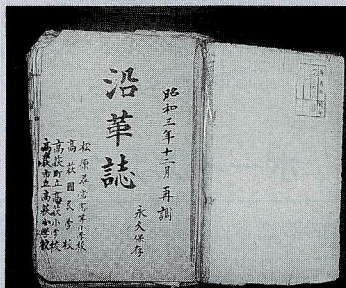 昭和三年十二月 再調
永久保存
沿革誌
松原尋常高等小学校
高萩国民学校
高萩町立高萩小学校
高萩市立高萩小学校